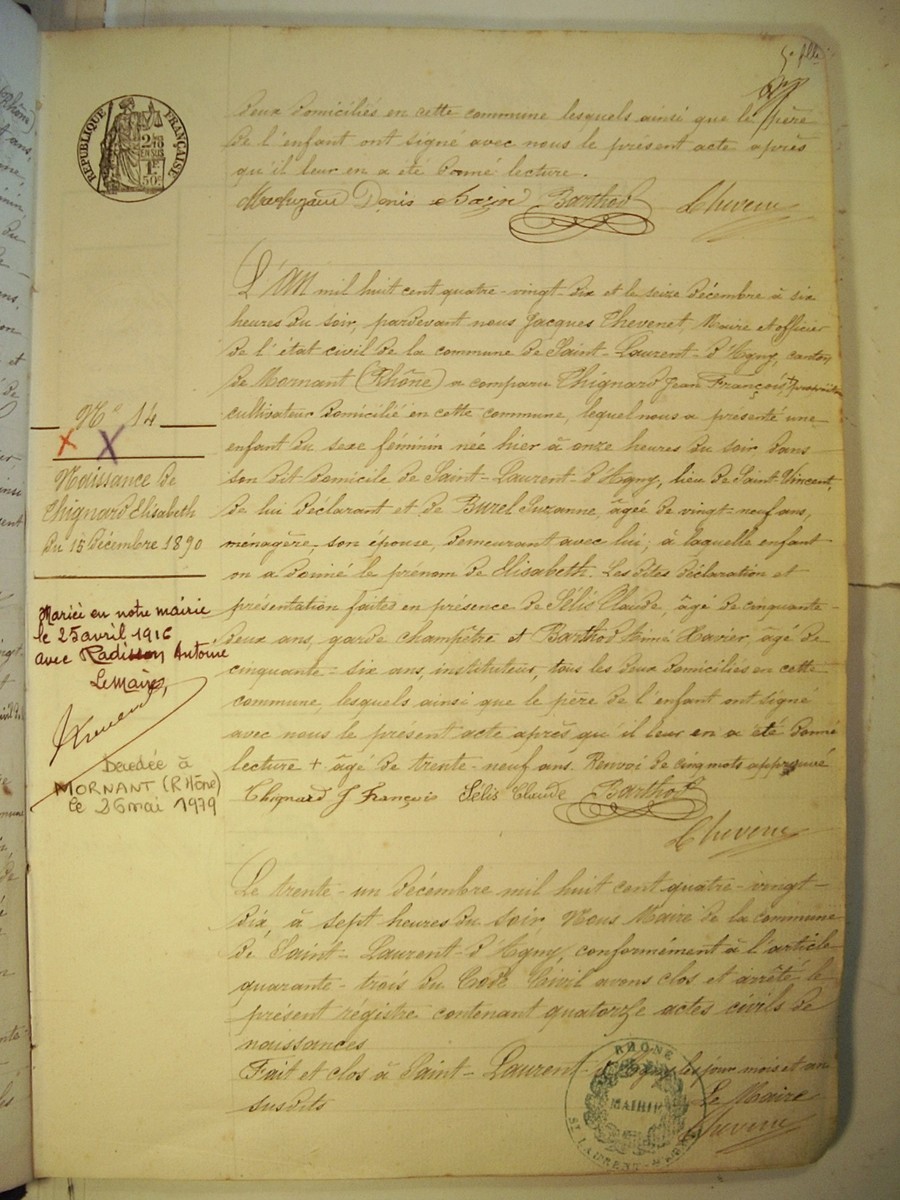 5e flle
RÉPUBLIQUE FRANÇAISE
2/10
EN SUS
1F
50c
deux domiciliés en cette commune lesquels ainsi que le père
de l'enfant ont signé avec nous le présent acte après
qu'il leur en a été donné lecture.
Denis Barthod Thevenet
L'AN mil huit cent quatre-vingt dix et le seize décembre à six
heures du soir, pardevant nous Jacques Thevenet, Maire et officier
de l'état civil de la commune de Saint-Laurent-d'Agny, canton
de Mornant (Rhône) a comparu Thignard Jean François, +
cultivateur domicilié en cette commune, lequel nous a présenté une
enfant du sexe féminin née hier à onze heures du soir dans
son dit domicile de Saint-Laurent-d'Agny, lieu de Saint-Vincent,
de lui déclarant et de Burel Suzanne, âgée de vingt-neuf ans,
ménagère, son épouse, demeurant avec lui, à laquelle enfant
on a donné le prénom de Elisabeth. Les dites déclaration et
présentation faites en présence de Sélis Claude, âgé de cinquante-
deux ans, garde champêtre et Barthod Aimé Xavier, âgé de
cinquante-six ans, instituteur, tous les deux domiciliés en cette
commune, lesquels ainsi que le père de l'enfant ont signé
avec nous le présent acte après qu'il leur en a été donné
lecture + âgé de trente-neuf ans. Renvoi de cinq mots approuvé
Thignard J François Sélis Claude Barthod
Thevenet
No 14
Naissance de
Thignard Elisabeth
du 15 décembre 1890
Mariée en notre mairie
le 25 avril 1916
avec Radisson Antoine
Le Maire,
Décédée à
MORNANT (Rhône)
le 26 mai 1979
Le trente-un décembre mil huit cent quatre-vingt-
dix, à sept heures du soir, Nous Maire de la commune
de Saint-Laurent-d'Agny, conformément à l'article
quarante-trois du Code Civil avons clos et arrêté le
présent régistre contenant quatorze actes civils de
naissances
Fait et clos à Saint-Laurent-d'Agny les jour mois et an
susdits
Le Maire
Thevenet
RHÔNE
MAIRIE
ST LAURENT-D'AGNY